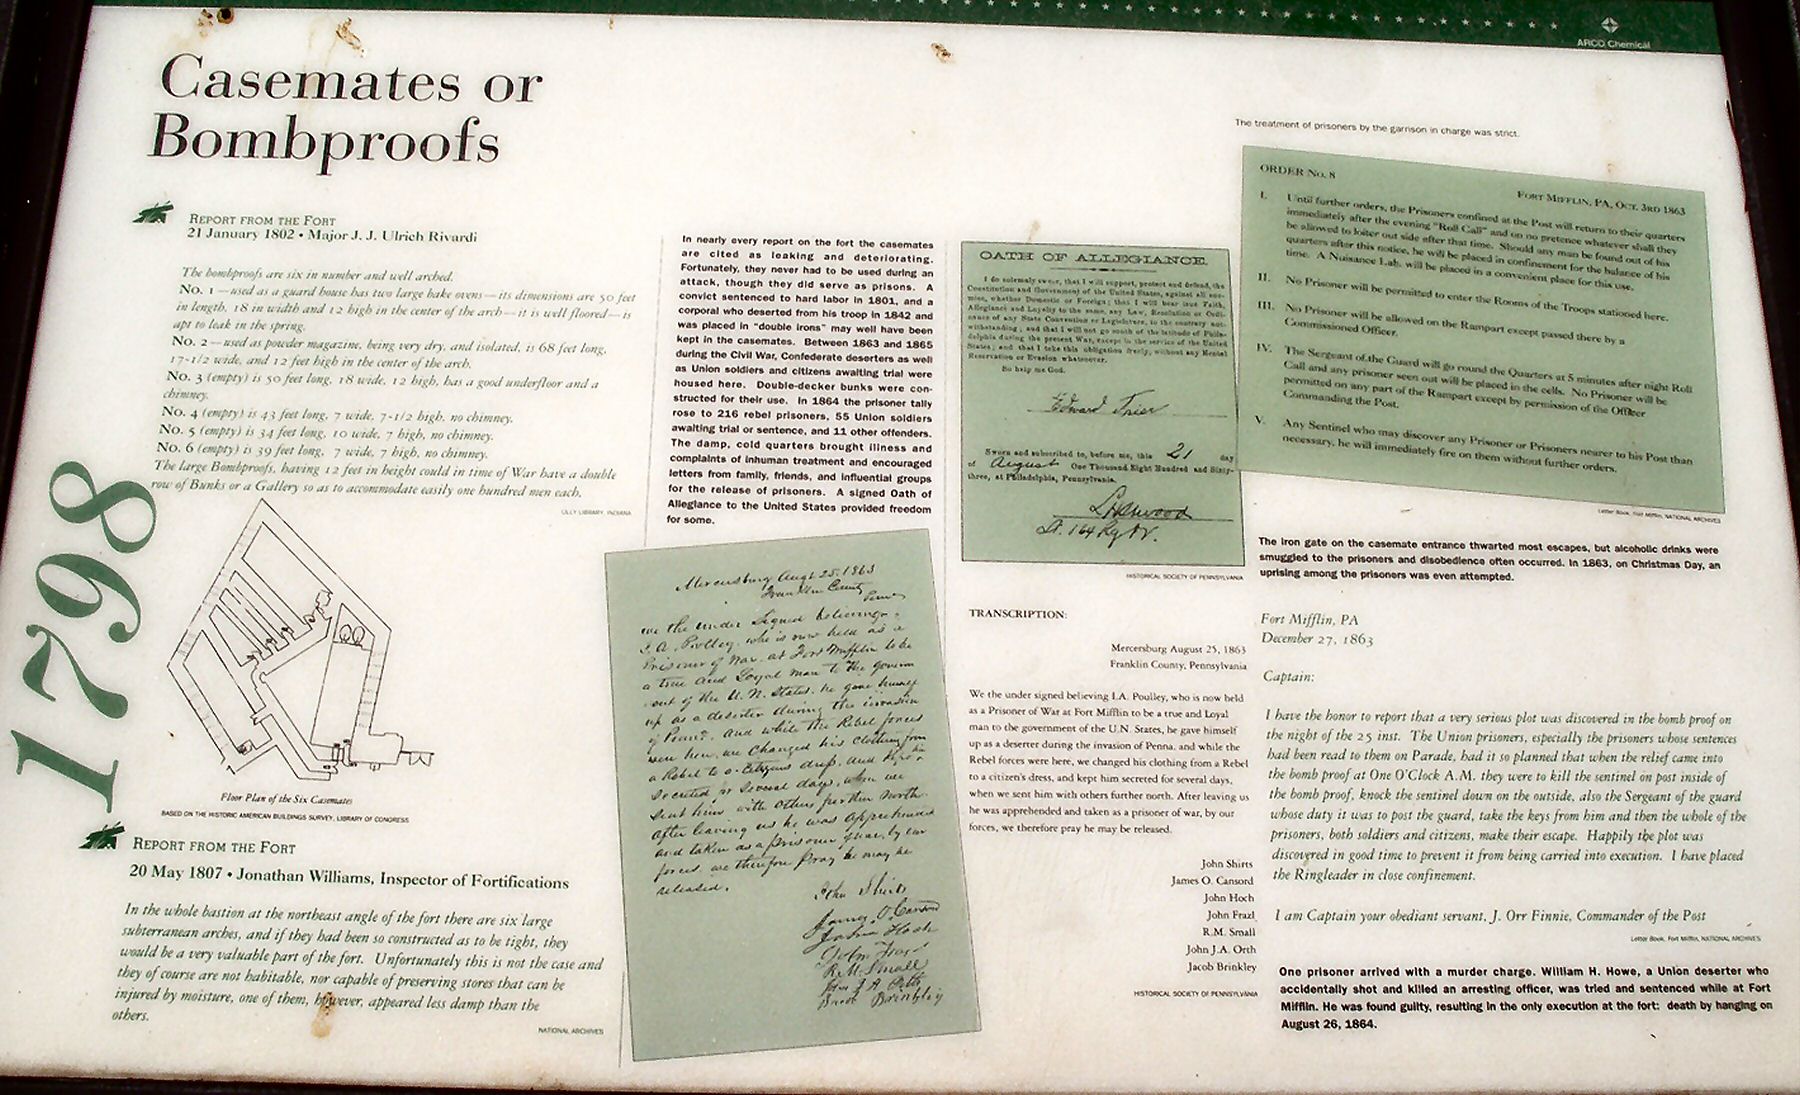 ARCO Chemical
Casemates or
Bombproofs
REPORT FROM THE FORT
21 January 1802 • Major J. J. Ulrich Rivardi
The bombproofs are six in number and well arched.
No. 1 — used as a guard house has two large bake ovens — its dimensions are 50 feet
in length, 18 in width and 12 high in the center of the arch — it is well floored — is
apt to leak in the spring.
No. 2 — used as powder magazine, being very dry, and isolated, is 68 feet long,
17-1/2 wide, and 12 feet high in the center of the arch.
No. 3 (empty) is 50 feet long, 18 wide, 12 high, has a good underfloor and a
chimney.
No. 4 (empty) is 43 feet long, 7 wide, 7-1/2 high, no chimney.
No. 5 (empty) is 34 feet long, 10 wide, 7 high, no chimney.
No. 6 (empty) is 39 feet long, 7 wide, 7 high, no chimney.
The large Bombproofs, having 12 feet in height could in time of War have a double
row of Bunks or a Gallery so as to accommodate easily one hundred men each.
LILLY LIBRARY, INDIANA
1798
Floor Plan of the Six Casemates
BASED ON THE HISTORIC AMERICAN BUILDINGS SURVEY, LIBRARY OF CONGRESS
REPORT FROM THE FORT
20 May 1807 • Jonathan Williams, Inspector of Fortifications
In the whole bastion at the northeast angle of the fort there are six large
subterranean arches, and if they had been so constructed as to be tight, they
would be a very valuable part of the fort. Unfortunately this is not the case and
they of course are not habitable, nor capable of preserving stores that can be
injured by moisture, one of them, however, appeared less damp than the
others.
NATIONAL ARCHIVES
In nearly every report on the fort the casemates
are cited as leaking and deteriorating.
Fortunately, they never had to be used during an
attack, though they did serve as prisons. A
convict sentenced to hard labor in 1801, and a
corporal who deserted from his troop in 1842 and
was placed in "double irons" may well have been
kept in the casemates. Between 1863 and 1865
during the Civil War, Confederate deserters as well
as Union soldiers and citizens awaiting trial were
housed here. Double-decker bunks were con-
structed for their use. In 1864 the prisoner tally
rose to 216 rebel prisoners, 55 Union soldiers
awaiting trial or sentence, and 11 other offenders.
The damp, cold quarters brought illness and
complaints of inhuman treatment and encouraged
letters from family, friends, and influential groups
for the release of prisoners. A signed Oath of
Allegiance to the United States provided freedom
for some.
Mercersburg Augt 25, 1863
Franklin County
Penna
we the under Signed believing
I. A. Poulley, who is now held as a
Prisoner of War at Fort Mifflin to be
a true and Loyal man to the govern
ment of the U. N. States, he gave himself
up as a deserter during the invasion
of Penna. and while the Rebel forces
were here, we changed his clothing from
a Rebel to a Citizens dress, and kept him
secreted for several days, when we
sent him with others further North
after leaving us he was apprehended
and taken as a prisoner of war, by our
forces, we therefore pray he may be
released.
John Shirts
James O. Cansord
John Hoch
John Frazl
R. M. Small
John J. A. Orth
Jacob Brinkley
OATH OF ALLEGIANCE.
I do solemnly swear, that I will support, protect and defend, the
Constitution and Government of the United States, against all ene-
mies, whether Domestic or Foreign; that I will bear true Faith,
Allegiance and Loyalty to the same, any Law, Resolution or Ordi-
nance of any State Convention or Legislature, to the contrary not-
withstanding; and that I will not go south of the latitude of Phila-
delphia during the present War, except in the service of the United
States; and that I take this obligation freely, without any Mental
Reservation or Evasion whatsoever.
So help me God.
Edward Trier
Sworn and subscribed to, before me, this 21 day
of August One Thousand Eight Hundred and Sixty-
three, at Philadelphia, Pennsylvania.
Lt. 164 Rg
HISTORICAL SOCIETY OF PENNSYLVANIA
TRANSCRIPTION:
Mercersburg August 25, 1863
Franklin County, Pennsylvania
We the under signed believing I.A. Poulley, who is now held
as a Prisoner of War at Fort Mifflin to be a true and Loyal
man to the government of the U.N. States, he gave himself
up as a deserter during the invasion of Penna. and while the
Rebel forces were here, we changed his clothing from a Rebel
to a citizen's dress, and kept him secreted for several days,
when we sent him with others further north. After leaving us
he was apprehended and taken as a prisoner of war, by our
forces, we therefore pray he may be released.
John Shirts
James O. Cansord
John Hoch
John Frazl
R.M. Small
John J.A. Orth
Jacob Brinkley
HISTORICAL SOCIETY OF PENNSYLVANIA
The treatment of prisoners by the garrison in charge was strict.
ORDER No. 8
FORT MIFFLIN, PA, OCT. 3RD 1863
I. Until further orders, the Prisoners confined at the Post will return to their quarters
immediately after the evening "Roll Call" and on no pretence whatever shall they
be allowed to loiter out side after that time. Should any man be found out of his
quarters after this notice, he will be placed in confinement for the balance of his
time. A Nuisance Lab. will be placed in a convenient place for this use.
II. No Prisoner will be permitted to enter the Rooms of the Troops stationed here.
III. No Prisoner will be allowed on the Rampart except passed there by a
Commissioned Officer.
IV. The Sergeant of the Guard will go round the Quarters at 5 minutes after night Roll
Call and any prisoner seen out will be placed in the cells. No Prisoner will be
permitted on any part of the Rampart except by permission of the Officer
Commanding the Post.
V. Any Sentinel who may discover any Prisoner or Prisoners nearer to his Post than
necessary, he will immediately fire on them without further orders.
Letter Book, Fort Mifflin, NATIONAL ARCHIVES
The iron gate on the casemate entrance thwarted most escapes, but alcoholic drinks were
smuggled to the prisoners and disobedience often occurred. In 1863, on Christmas Day, an
uprising among the prisoners was even attempted.
Fort Mifflin, PA
December 27, 1863
Captain:
I have the honor to report that a very serious plot was discovered in the bomb proof on
the night of the 25 inst. The Union prisoners, especially the prisoners whose sentences
had been read to them on Parade, had it so planned that when the relief came into
the bomb proof at One O'Clock A.M. they were to kill the sentinel on post inside of
the bomb proof, knock the sentinel down on the outside, also the Sergeant of the guard
whose duty it was to post the guard, take the keys from him and then the whole of the
prisoners, both soldiers and citizens, make their escape. Happily the plot was
discovered in good time to prevent it from being carried into execution. I have placed
the Ringleader in close confinement.
I am Captain your obediant servant, J. Orr Finnie, Commander of the Post
Letter Book, Fort Mifflin, NATIONAL ARCHIVES
One prisoner arrived with a murder charge. William H. Howe, a Union deserter who
accidentally shot and killed an arresting officer, was tried and sentenced while at Fort
Mifflin. He was found guilty, resulting in the only execution at the fort: death by hanging on
August 26, 1864.